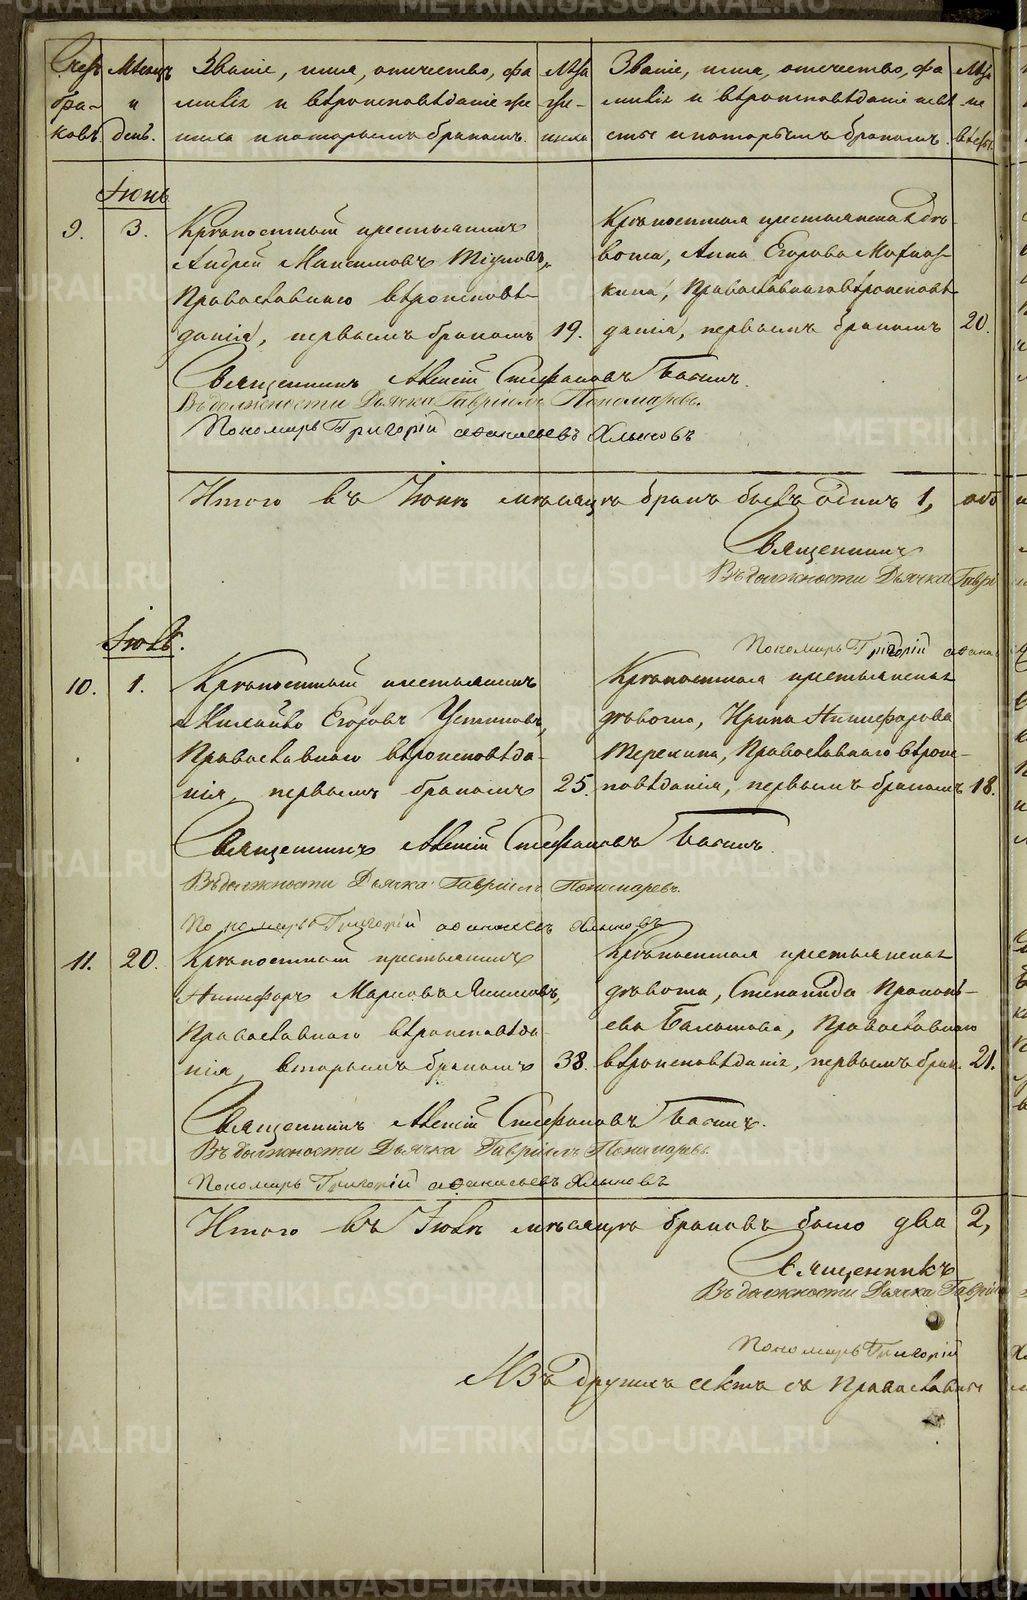 Счетъ браковъ.
Мѣсяцъ и день.
Званіе, имя, отчество, фа
милія и вѣроисповѣданіе же
ниха и которымъ бракомъ.
Лѣта жениха
Званіе, имя, отчество, фа
милія и вѣроисповѣданіе невѣ
сты и которымъ бракомъ.
Лѣта невѣсты.
Іюнь
9. 3.
Крѣпостный крестьянинъ
Андрей Максимовъ
Православнаго вѣроисповѣ-
данія, первымъ бракомъ 19.
Крѣпостная крестьянска дѣ-
вка, Анна Егорова
Православнаго вѣроисповѣ
данія, первымъ бракомъ 20.
Священникъ Алексій Стефановъ Басинъ.
Въ должности Дьячка Гавріилъ Пономаревъ.
Пономарь Григорій Афанасьевъ Хлыновъ
Итого въ Іюнѣ мѣсяцѣ бракъ былъ одинъ 1,
Священникъ
Въ должности Дьячка Гаврі
Пономарь Григорій Афана
Іюль.
10. 1.
Крѣпостный крестьянинъ
Михайло Егоровъ Устиновъ,
Православнаго вѣроисповѣда-
нія, первымъ бракомъ 25.
Крѣпостная крестьянская
дѣвка, Ирина Никифорова
Терехина, Православнаго вѣроис-
повѣданія, первымъ бракомъ 18.
Священникъ Алексій Стефановъ Басинъ.
Въ должности Дьячка Гавріилъ Пономаревъ.
Пономарь Григорій Афанасьевъ Хлыновъ
11. 20.
Крѣпостный крестьянинъ
Никифоръ Марковъ Якимовъ,
Православнаго вѣроисповѣда-
нія, вторымъ бракомъ 38.
Крѣпостная крестьянская
дѣвка, Степанида Прокопь-
ева Балашова, Православнаго
вѣроисповѣданія, первымъ брак. 21.
Священникъ Алексій Стефановъ Басинъ.
Въ должности Дьячка Гавріилъ Пономаревъ.
Пономарь Григорій Афанасьевъ Хлыновъ
Итого въ Іюлѣ мѣсяцѣ браковъ было два 2,
Священникъ
Въ должности Дьячка Гаврі
Пономарь Григорій
Изъ другихъ сектъ съ Православны
METRIKI.GASO-URAL.RU